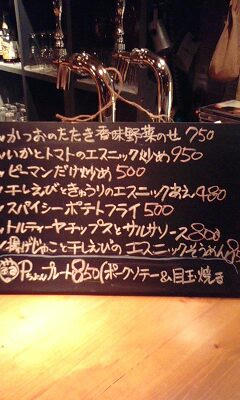 かつおのたたき香味野菜のせ 750
いかとトマトのエスニック炒め 950
ピーマンだけ炒め 500
干しえびときゅうりのエスニックあえ 480
スパイシーポテトフライ 500
トルティーヤチップスとサルサソース 800
揚げじゃこと干しえびの エスニックそうめん
Pちゃんプレート 850(ポークソテー&目玉焼き